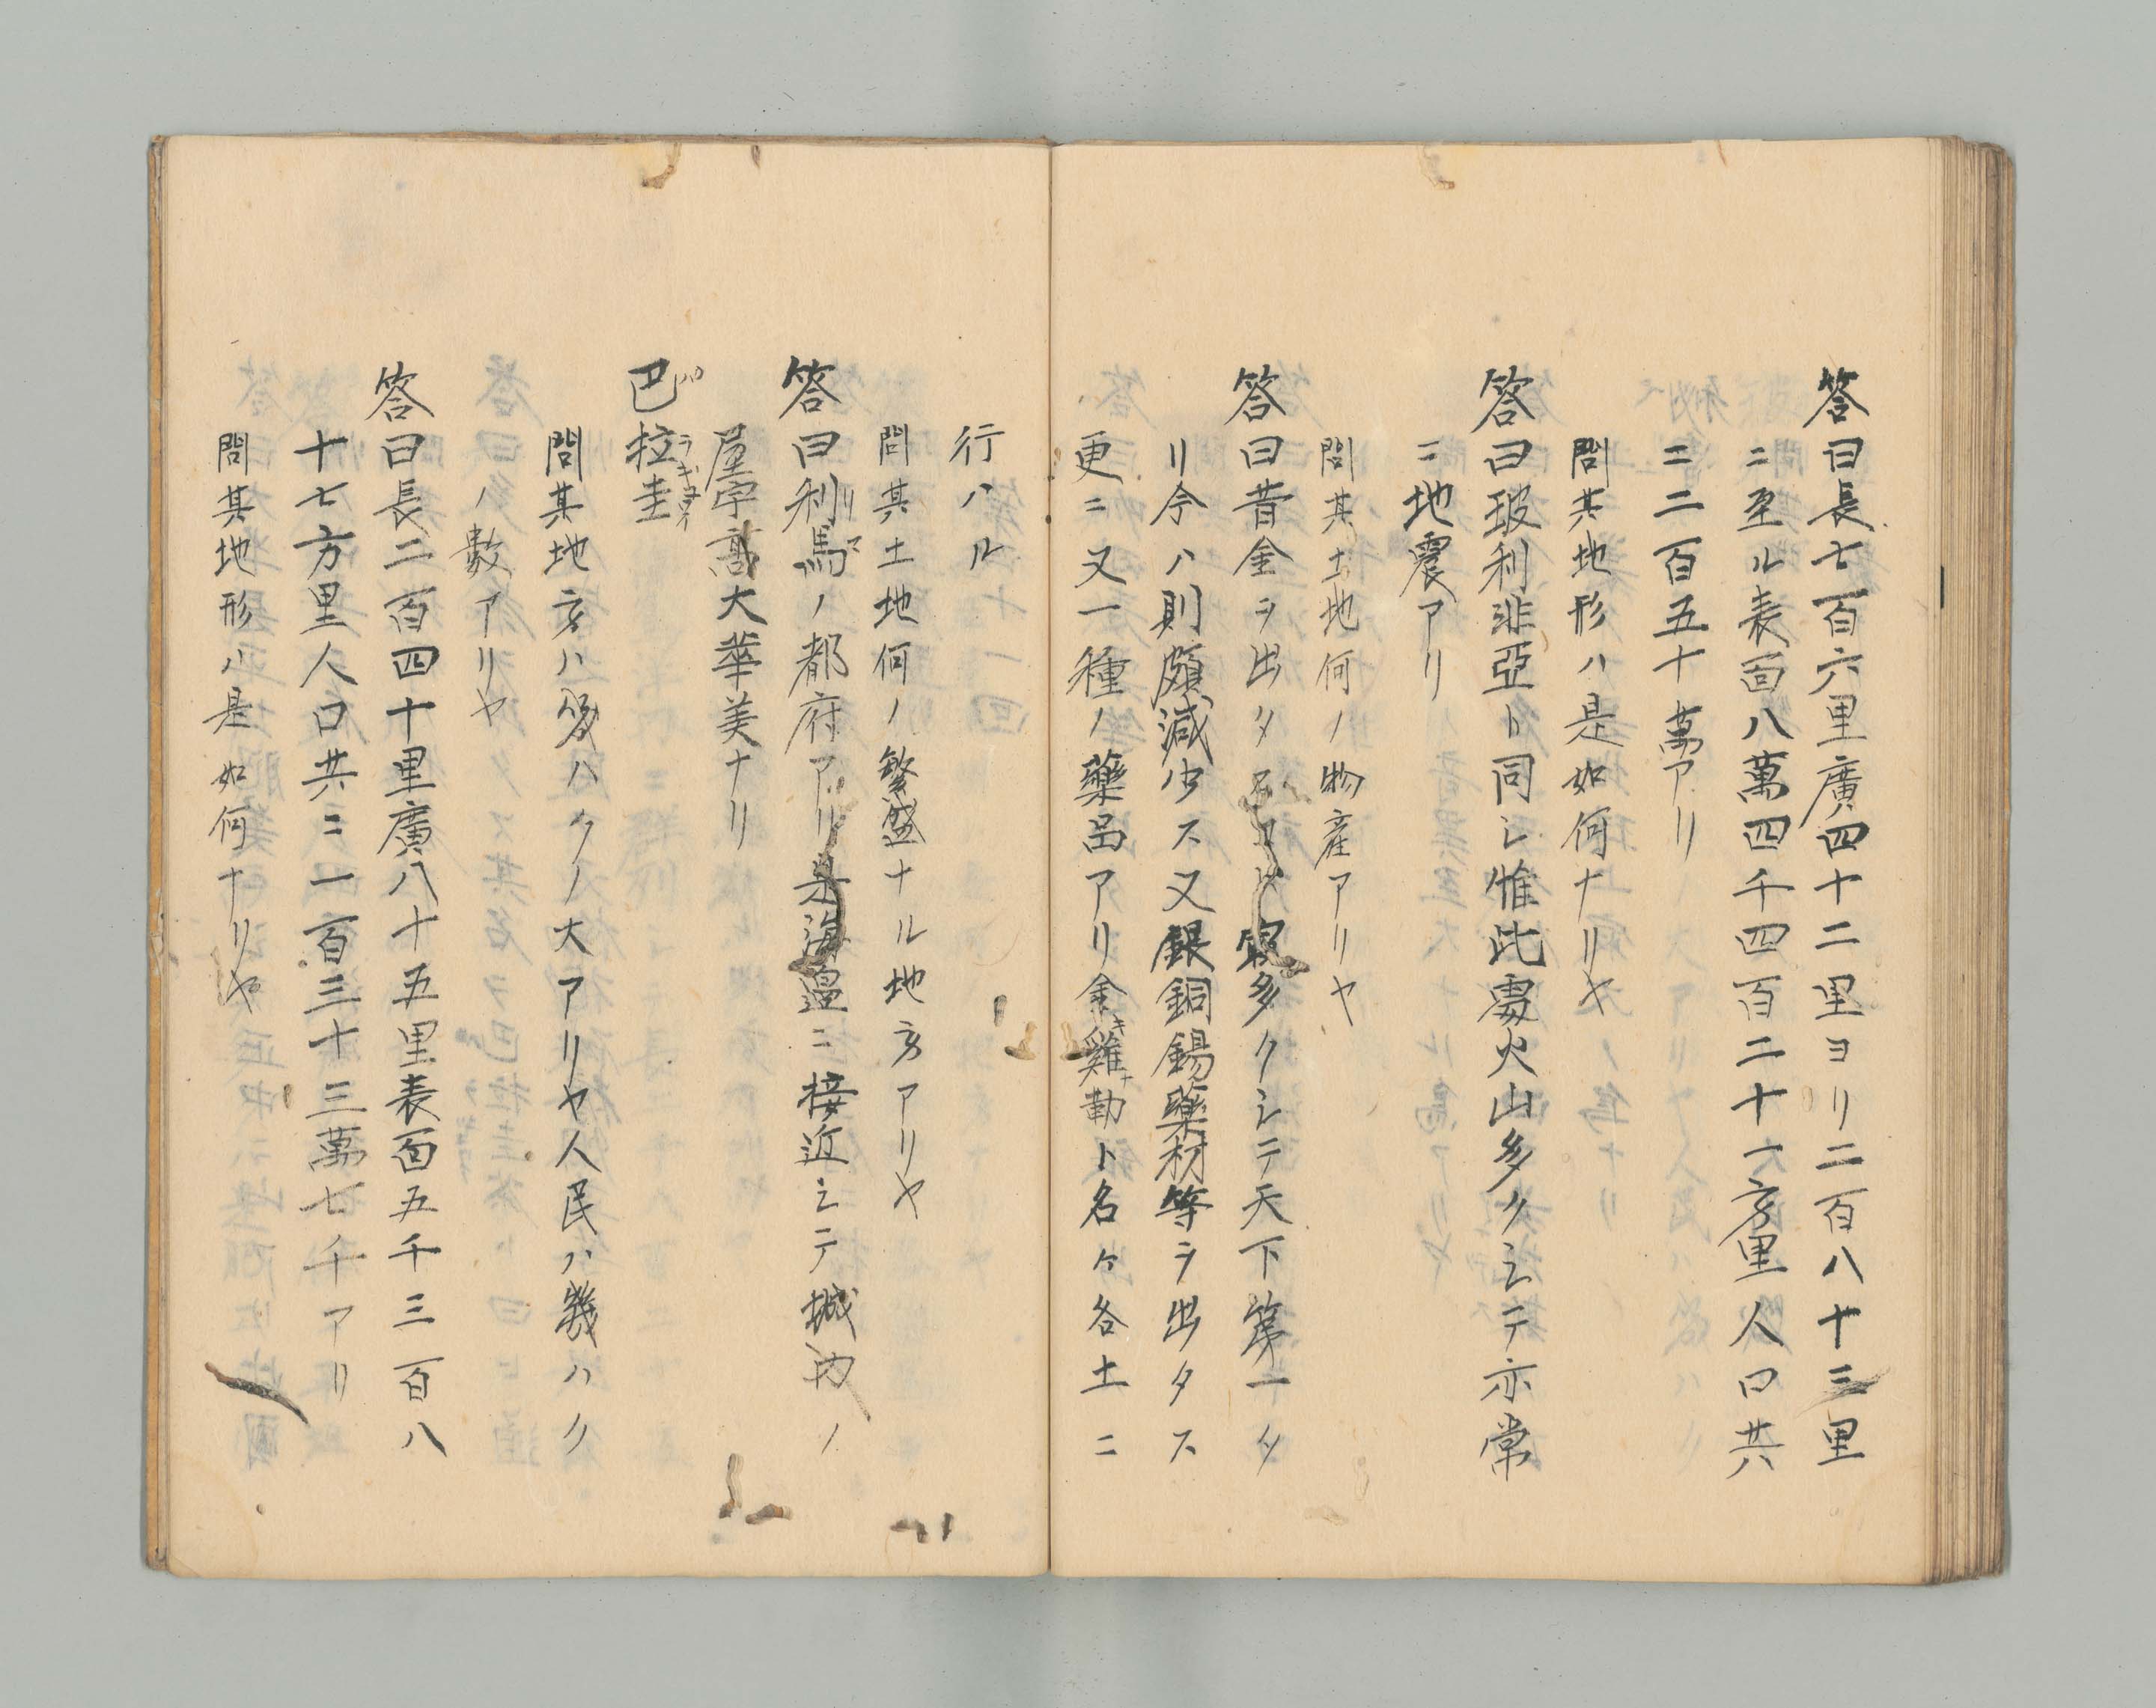 答曰長七百六里廣四十二里ヨリ二百八十三里
ニ至ル表面八萬四千四百二十一方里人口共
ニ二百五十萬アリ
問其地形ハ是如何ナリヤ
答曰玻利非亞ト同シ惟此處火山多クシテ亦常
ニ地震アリ
問其土地何ノ物産アリヤ
答曰昔金ヲ出タス 最多クシテ天下第一タ
リ今ハ則頗減少ス又銀銅錫藥材等ヲ出タス
更ニ又一種ノ藥品アリ金雞勒キナト名ケ各土ニ
行ハル
問其土地何ノ繁盛ナル地方アリヤ
答曰利馬リマノ都府アリ是海邉ニ接近シテ城内ノ
屋宇高大華美ナリ
巴拉圭パラギユアイ
問其地方ハ幾ハクノ大アリヤ人民ハ幾ハク
ノ數アリヤ
答曰長二百四十里廣八十五里表面五千三百八
十七方里人口共ニ一百三十三萬七千アリ
問其地形ハ是如何ナリヤ